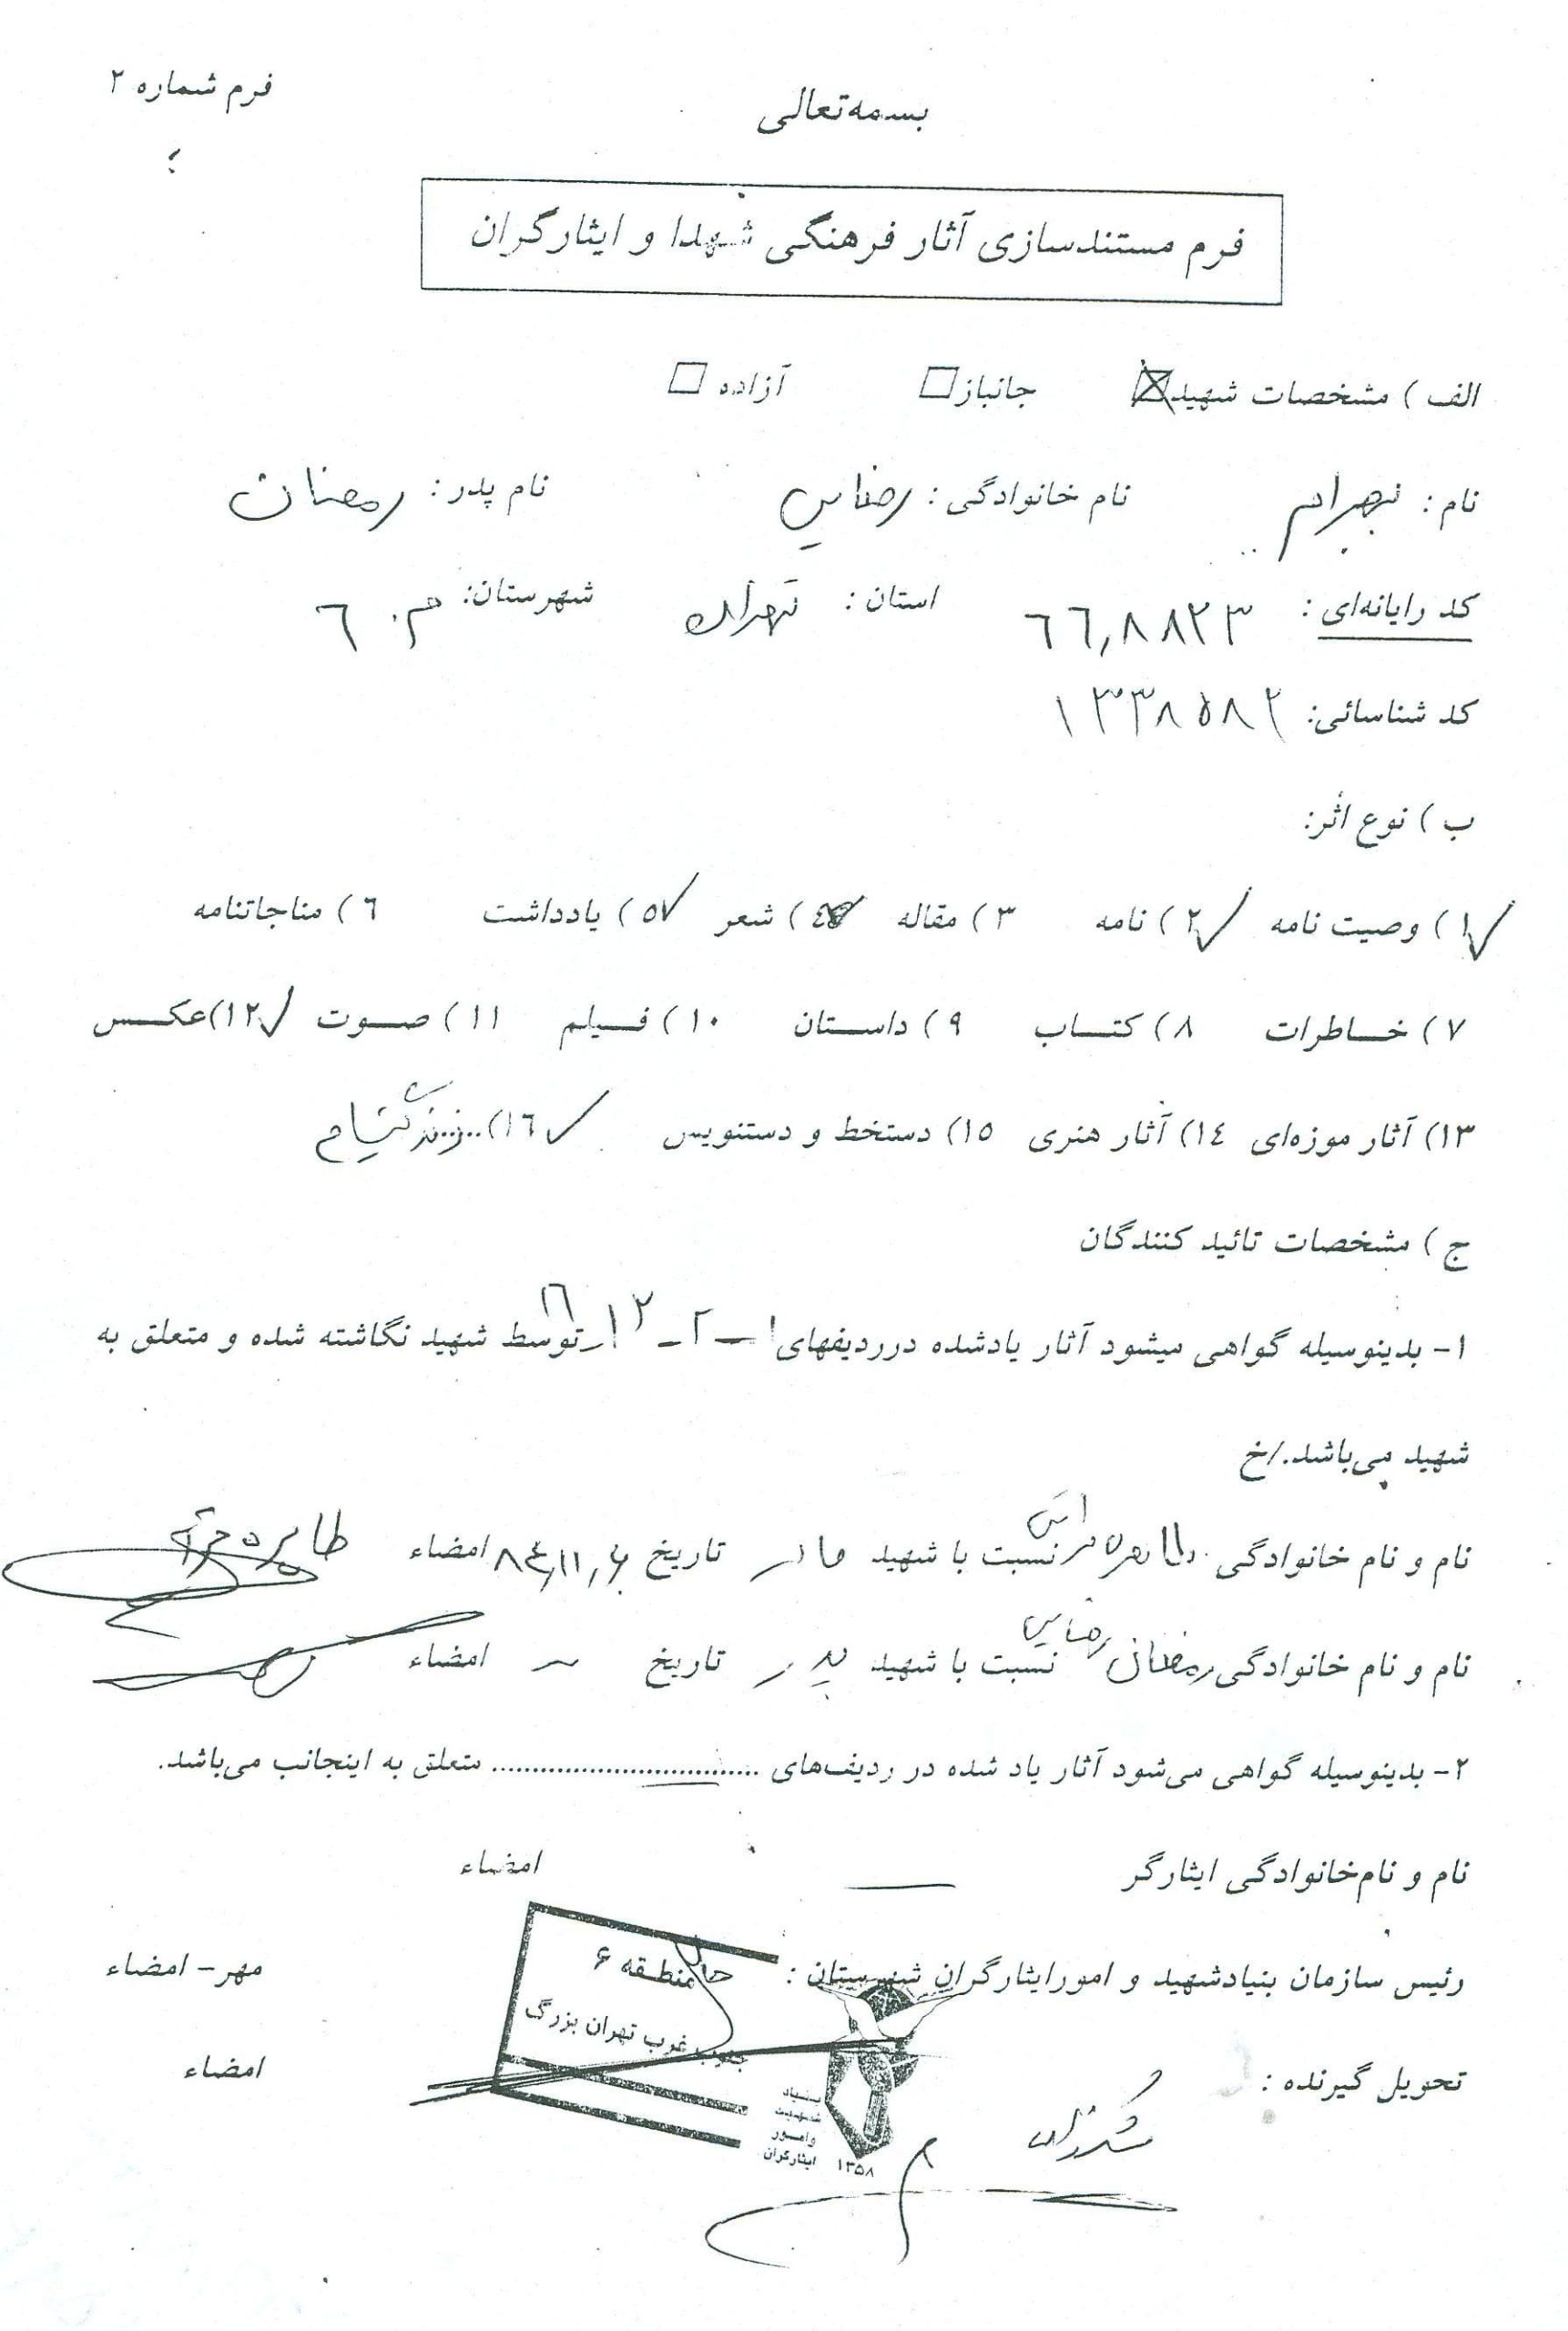 فرم شماره ۲
بسمه‌تعالی
فرم مستندسازی آثار فرهنگی شهدا و ایثارگران
الف ) مشخصات شهید جانباز آزاده
نام : بهرام نام خانوادگی : رضایی نام پدر : رمضان
کد رایانه‌ای : ۶۶۰۸۸۲۳ استان : تهران شهرستان: م. ۶
کد شناسائی: ۱۳۳۸۵۸۲
ب ) نوع اثر:
۱ ) وصیت نامه ۲ ) نامه ۳ ) مقاله ٤ ) شعر ۵ ) یادداشت ٦ ) مناجاتنامه
۷ ) خـاطرات ۸ ) کتـاب ۹ ) داسـتان ۱۰ ) فـیلم ۱۱ ) صـوت ۱۲)عکـس
۱۳) آثار موزه‌ای ۱٤) آثار هنری ۱۵) دستخط و دستنویس ۱٦)
ج ) مشخصات تائید کنندگان
۱- بدینوسیله گواهی میشود آثار یادشده درردیفهای ۱ – ۲ – ۱۲ – ۱۶ توسط شهید نگاشته شده و متعلق به
شهید می‌باشد./خ
نام و نام خانوادگی طاهره نسبت با شهید مادر تاریخ ۸۴,۱۱,۶ امضاء طاهره
نام و نام خانوادگی رمضان رضایی نسبت با شهید پدر تاریخ ~ امضاء
۲- بدینوسیله گواهی می‌شود آثار یاد شده در ردیف‌های ................................ متعلق به اینجانب می‌باشد.
نام و نام‌خانوادگی ایثارگر امضاء
رئیس سازمان بنیادشهید و امورایثارگران شهرستان : منطقه ۶ مهر- امضاء
جنوب غرب تهران بزرگ
تحویل گیرنده : امضاء
بنیاد
شهید
وامور
ایثارگران
۱۳۵۸